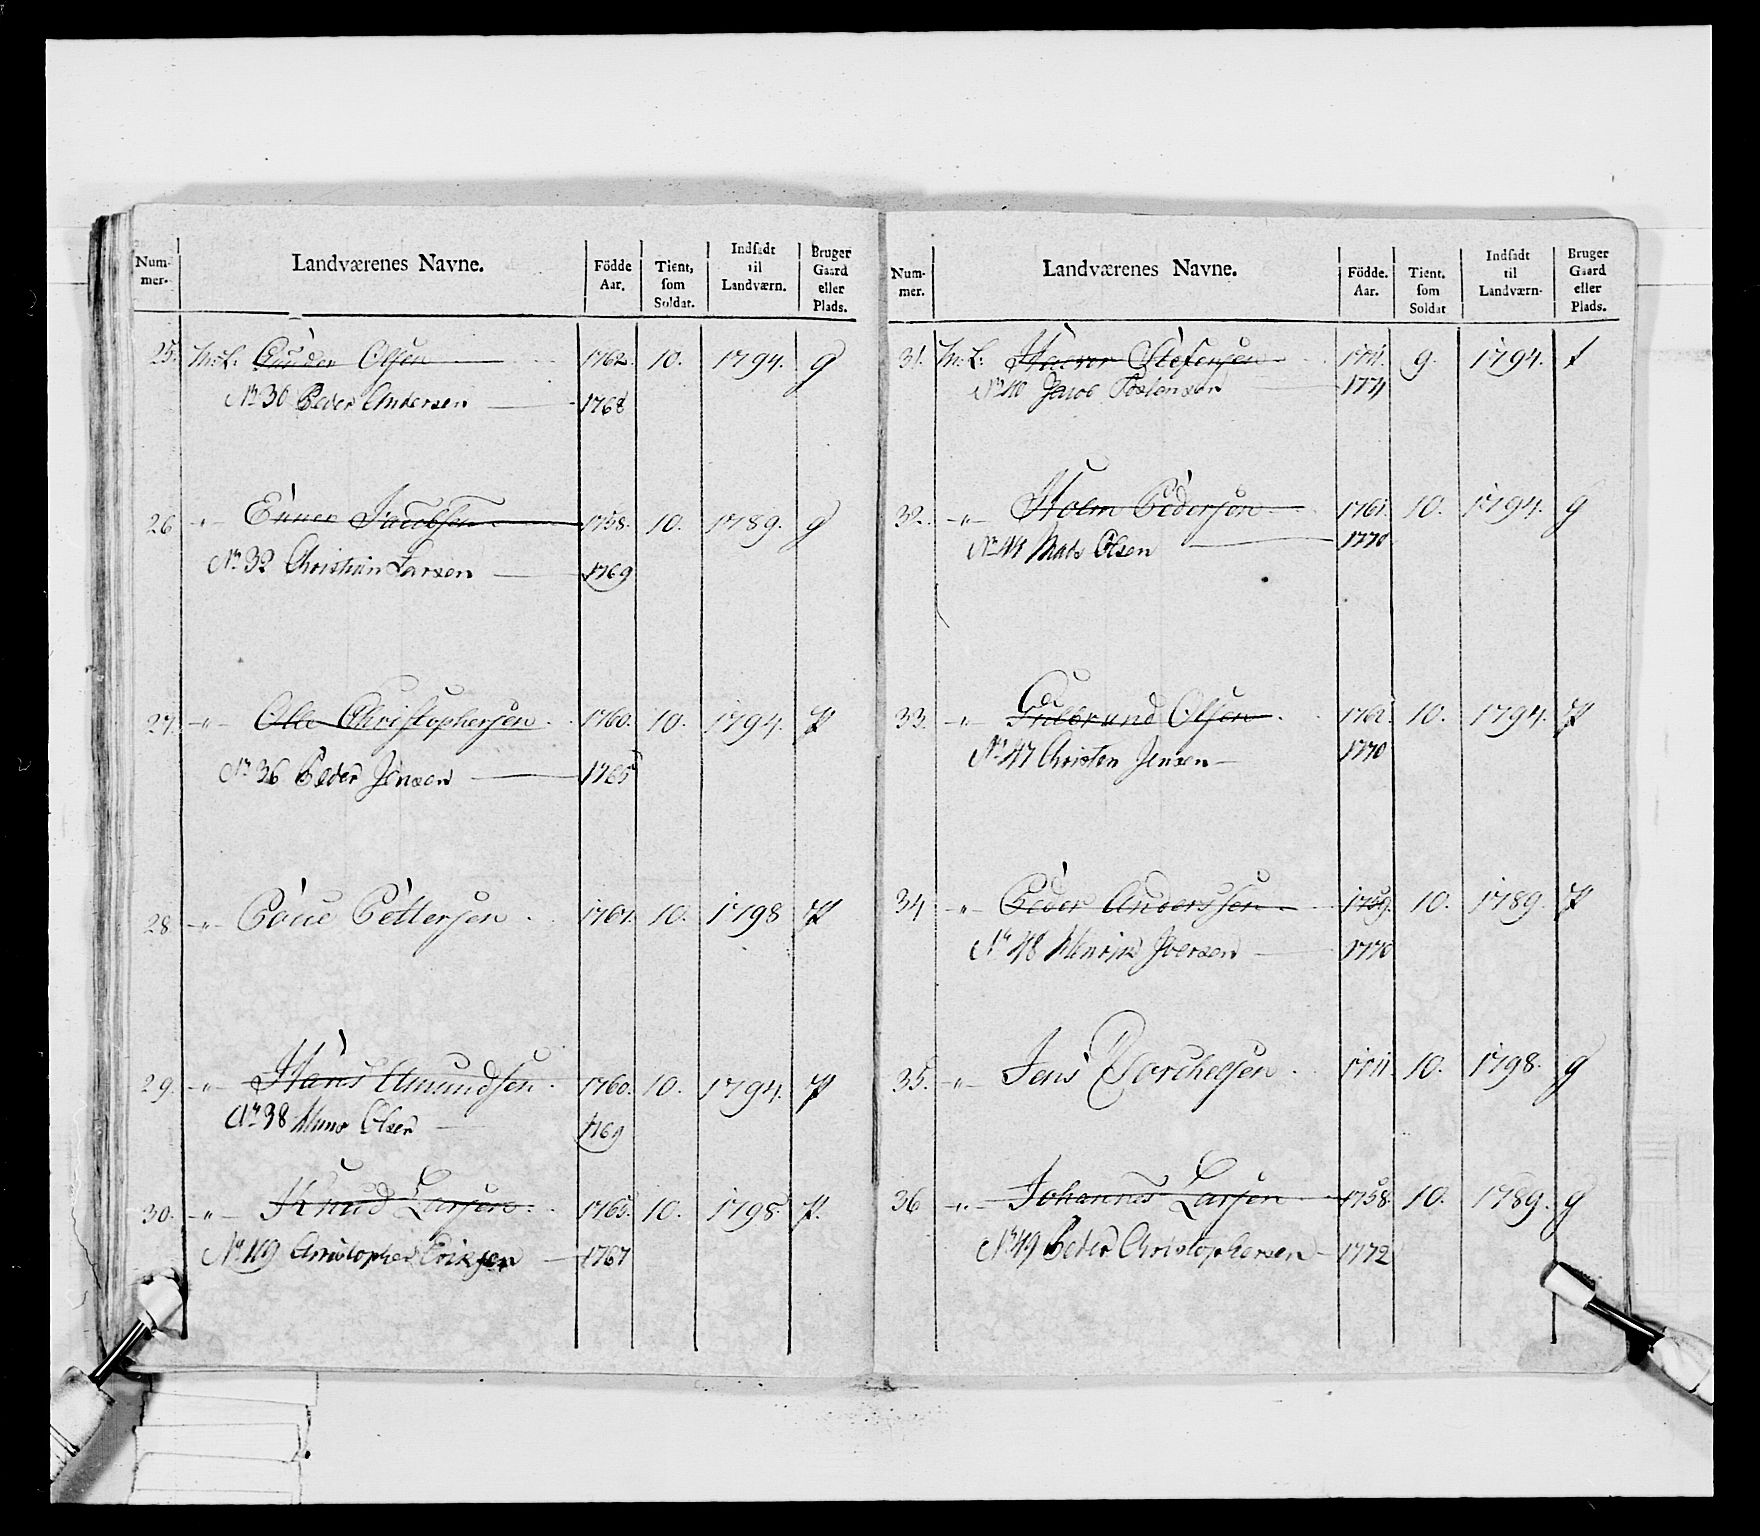 Num-
mer.
Landværenes Navne.
Födde
Aar.
Tient,
som
Soldat.
Indsadt
til
Landværn.
Bruger
Gaard
eller
Plads.
25. Olsen 1762. 10. 1794. g
No 30 Peder Andersen 1768
26 -"- Enner Jacobsen 1758. 10. 1789. g
No 32 Christian Larsen 1769
27. -"- Ole Christophersen. 1760. 10. 1794. P
No 36 Peder Jensen 1765
28 -"- Poue Pettersen. 1767. 10. 1798 P
29. -"- Hans Amundsen. 1760. 10. 1794. P
No 38 Hans Olsen 1769
30. -"- Knud Larsen. 1765. 10. 1795. P.
Christopher Eriksen 1767
Num-
mer.
Landværenes Navne.
Födde.
Aar.
Tient.
som
Soldat
Indsadt
til
Landværn.
Bruger
Gaard
eller
Plads.
31. Stefensen. 9. 1794.
No 40 Jacob 1771
32. -"- Holm Pedersen 1761. 10. 1794. g
No 44 Mads Olsen 1770
33. " Gulbrand Olsen. 1762. 10. 1794. P
No 47 Christen Jensen 1770
34 -"- Peder Anderssen. 1759. 10. 1789. P
No 48 Henrik Iversen 1770
35. -"- Jens Torchelsen. 10. 1798. g
36 -"- Johannes Larsen 1758. 10. 1789. g
No 49 Peder Christophersen 1772